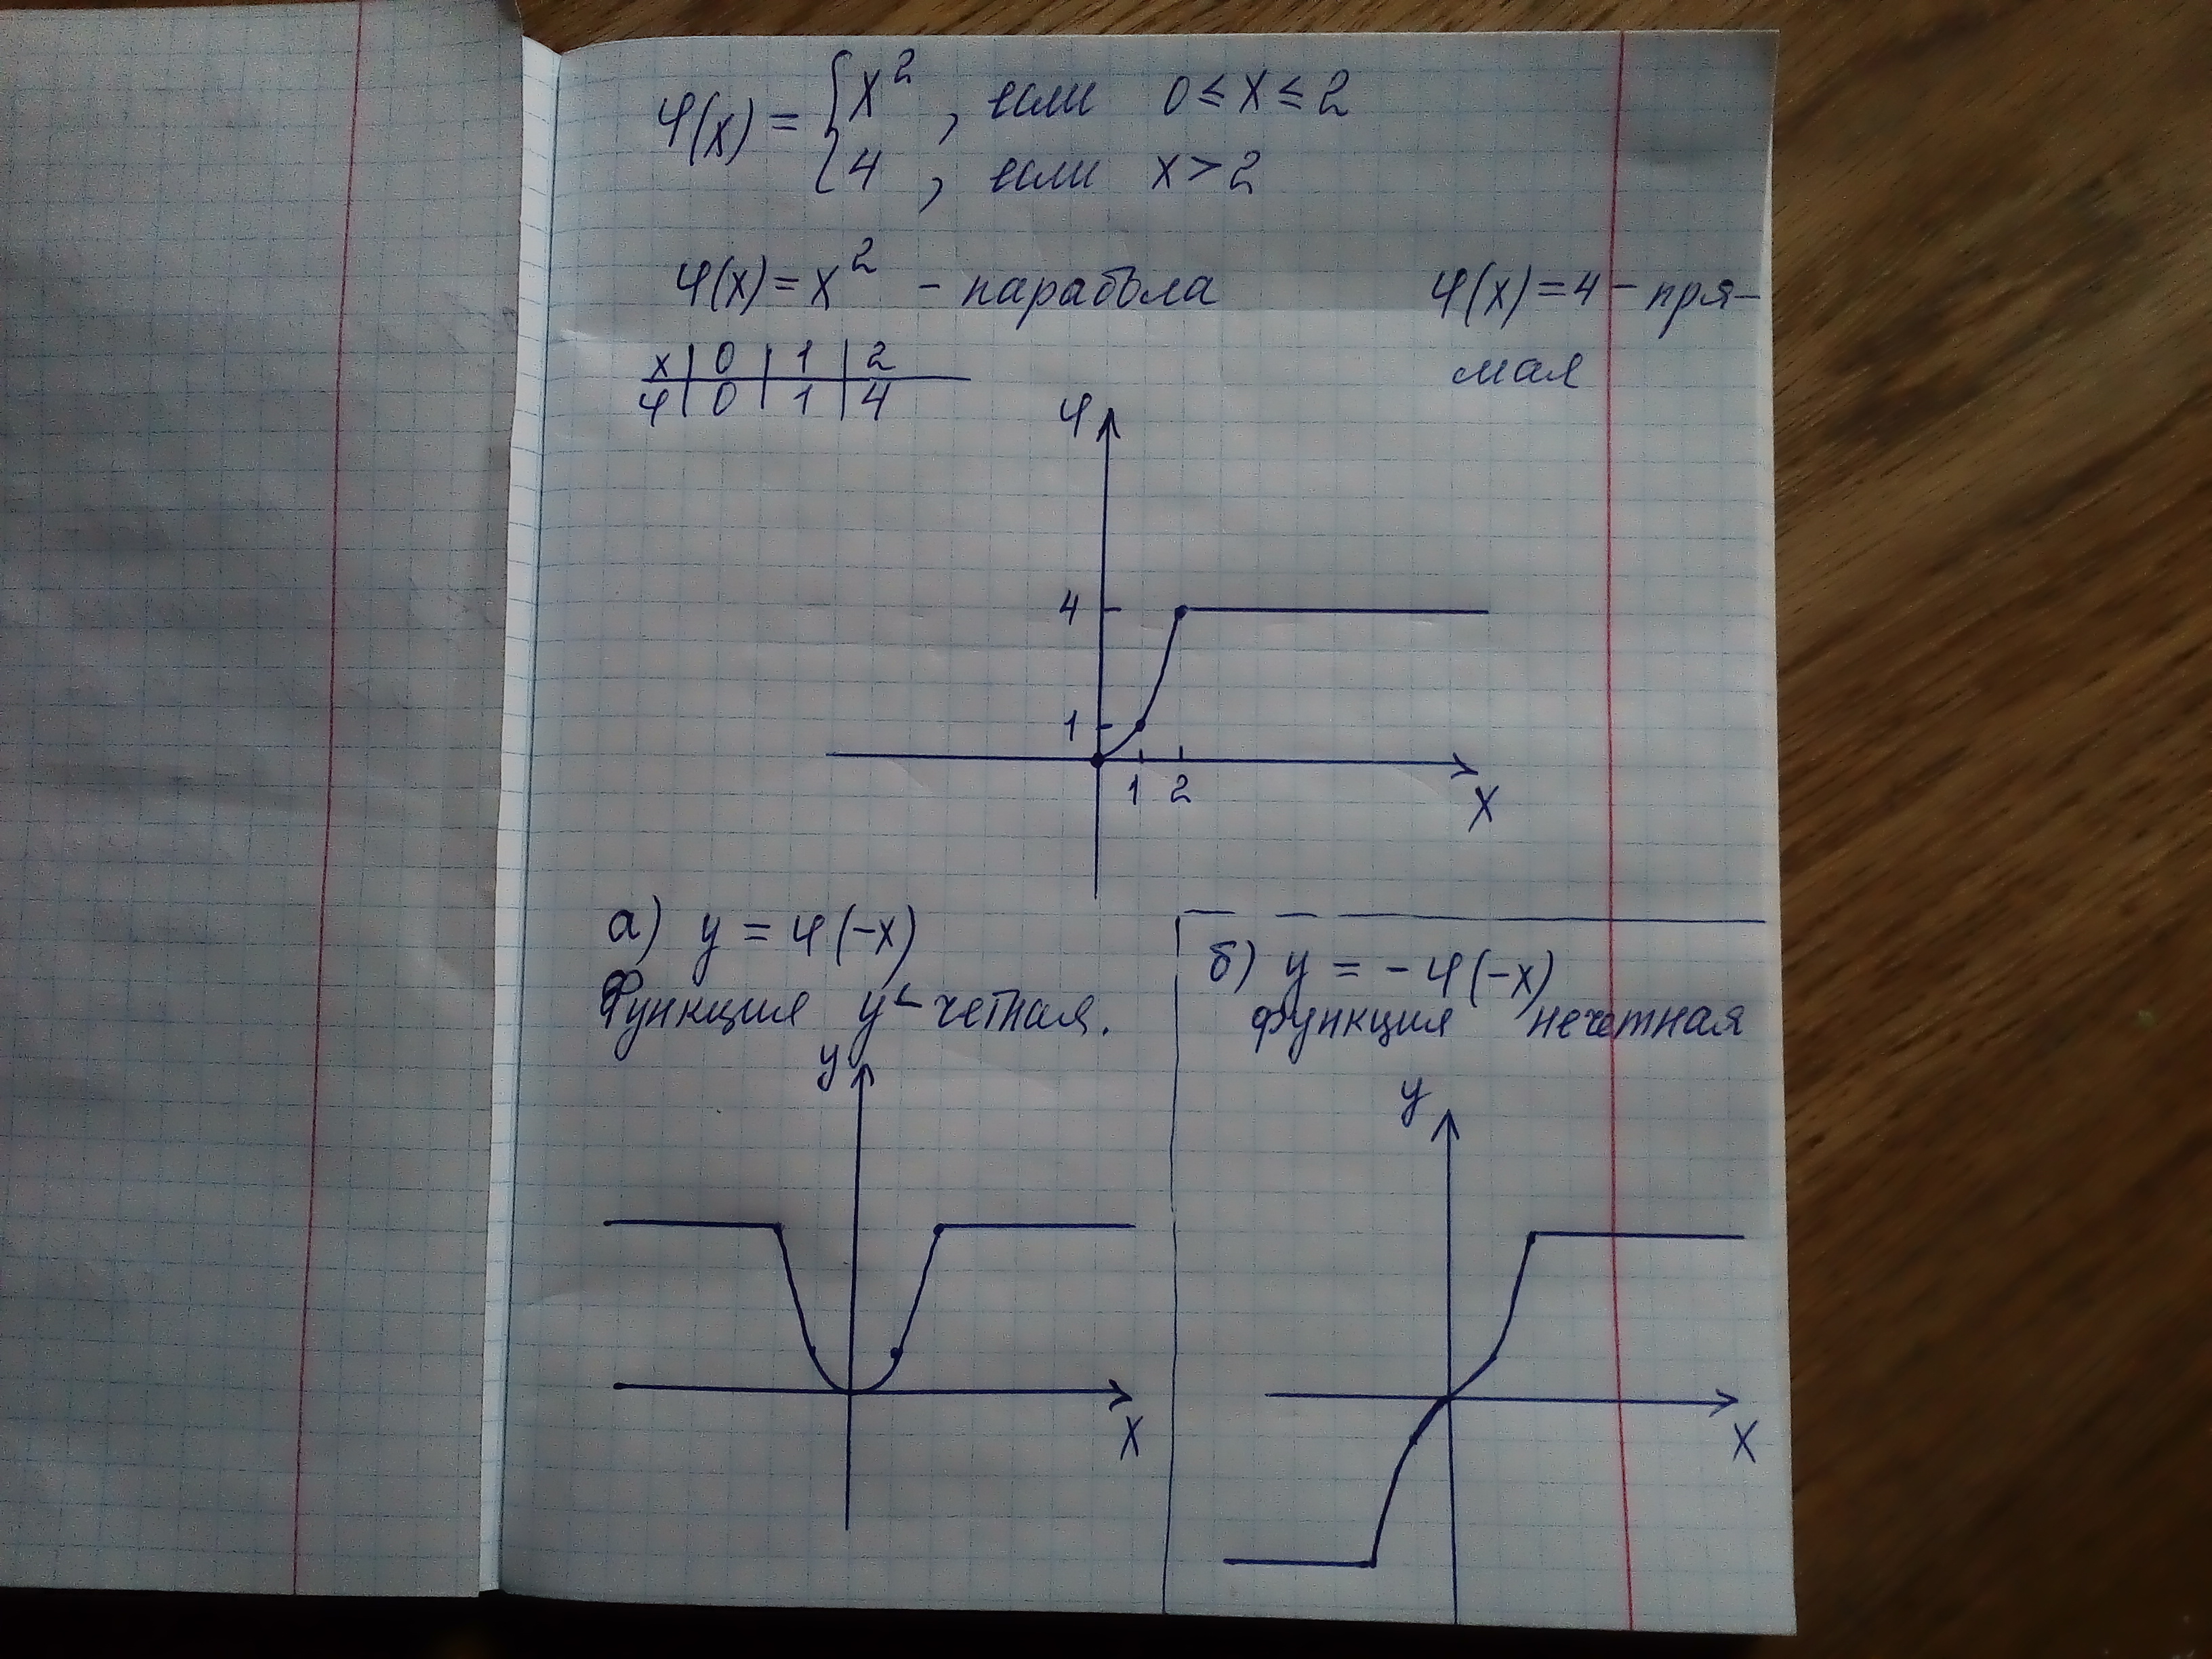 φ(x) = { x², если 0 ≤ x ≤ 2
4, если x > 2
φ(x) = x² – парабола
φ(x) = 4 – пря-
мая
x | 0 | 1 | 2
φ | 0 | 1 | 4
φ
4
1
1 2
x
а) y = φ(-x)
Функция y – четная.
y
x
б) y = - φ(-x)
функция нечетная
y
x